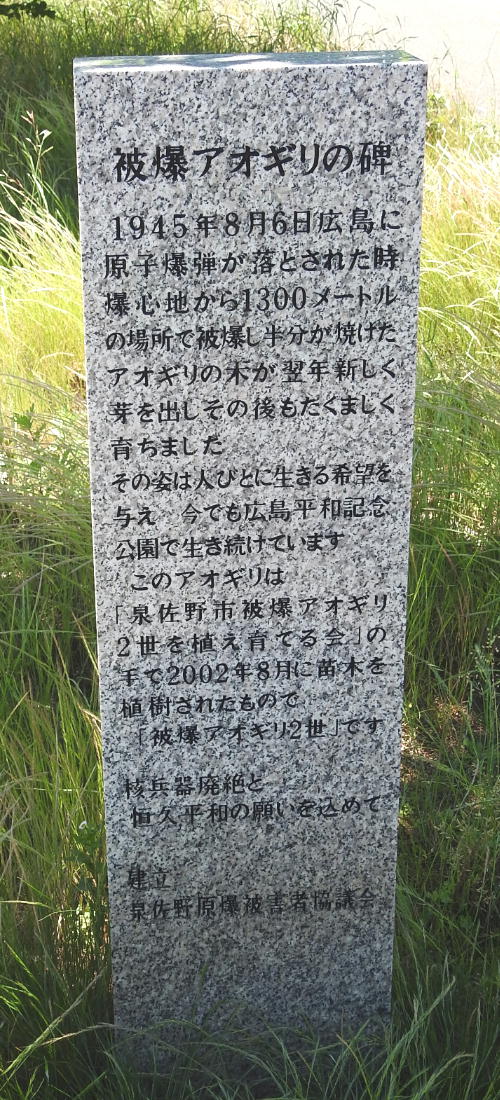 被爆アオギリの碑
1945年8月6日広島に
原子爆弾が落とされた時
爆心地から1300メートル
の場所で被爆し半分が焼けた
アオギリの木が翌年新しく
芽を出しその後もたくましく
育ちました
その姿は人びとに生きる希望を
与え 今でも広島平和記念
公園で生き続けています
このアオギリは
「泉佐野市被爆アオギリ
2世を植え育てる会」の
手で2002年8月に苗木を
植樹されたもので
「被爆アオギリ2世」です
核兵器廃絶と
恒久平和の願いを込めて
建立
泉佐野原爆被害者協議会